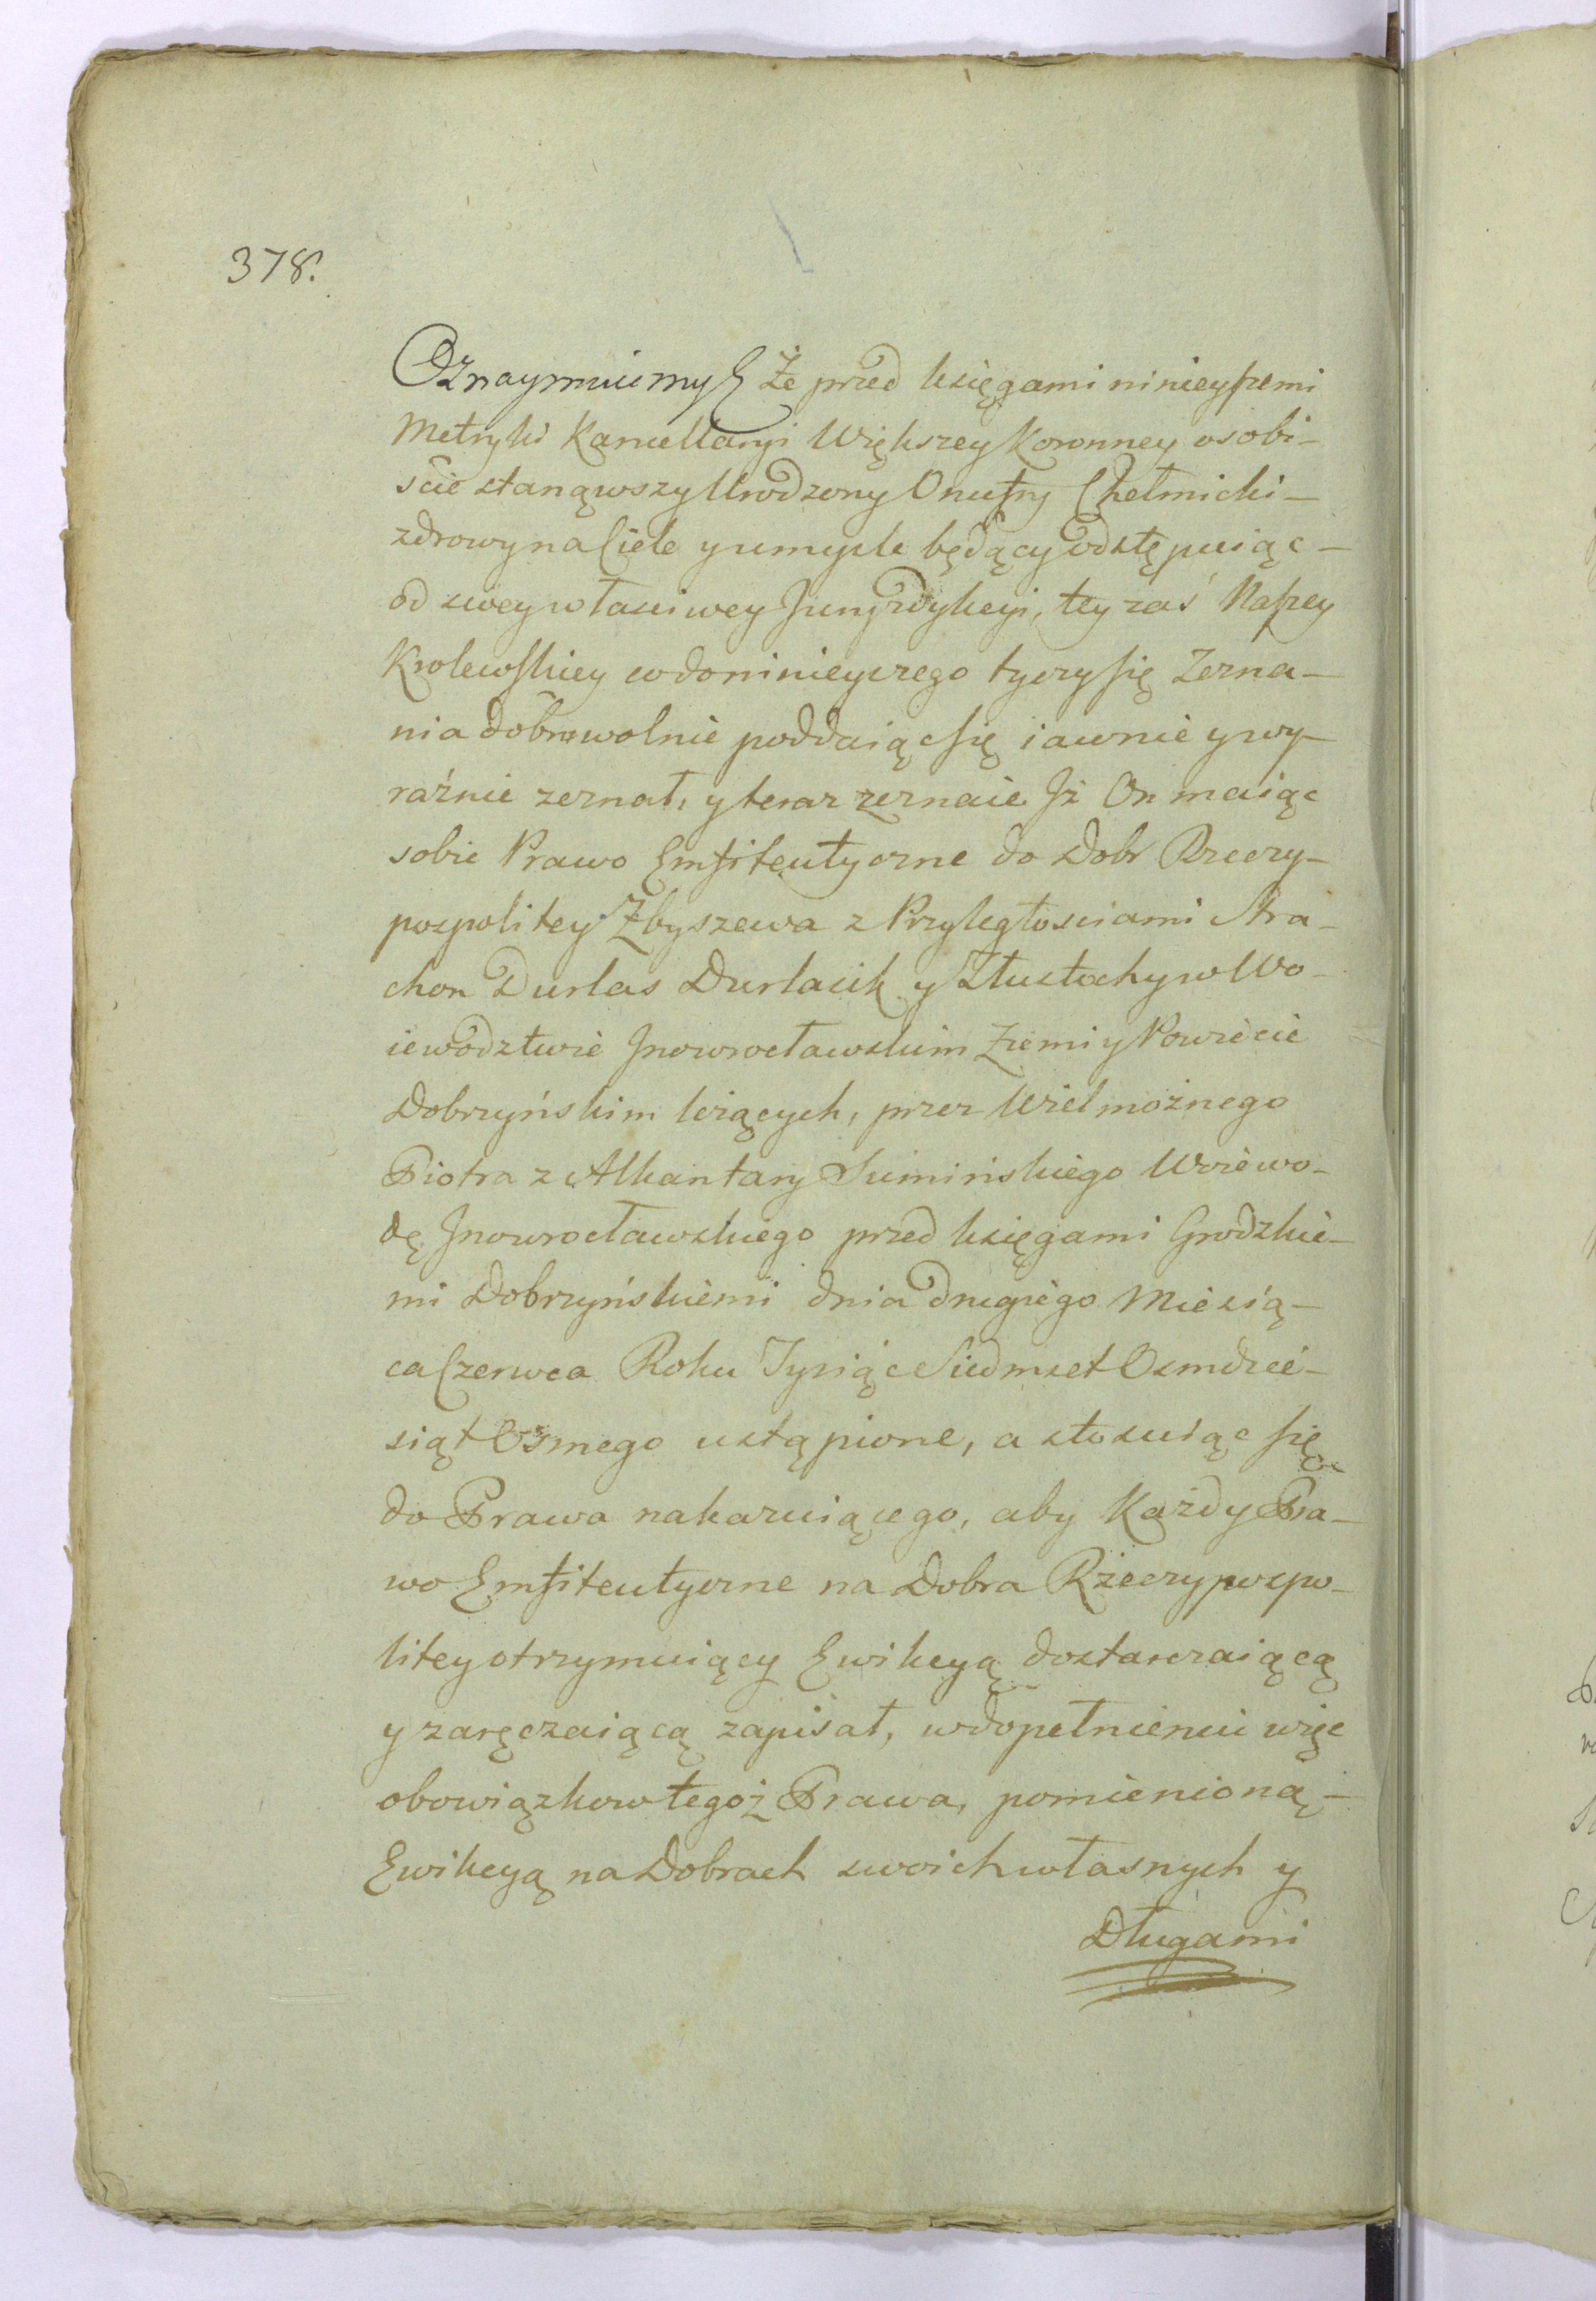 378.
Oznaymuiemy Że przed księgami ninieyszemi
Metryki Kancellaryi Większey Koronney osobi-
ście stanąwszy Urodzony Onufry Chełmicki -
zdrowy na Ciele y umyśle będący odstępuiąc -
od swey właściwey Jurysdykcyi, tey zaś Naszey
Krolewskiey co do ninieyszego tyczy się Zezna-
nia dobrowolnie poddaiąc się iawnie y wy-
raźnie zeznał, y teraz zeznaie Jż On maiąc
sobie Prawo Emfiteutyczne do Dobr Rzeczy-
pospolitey Zbyszewa z Przyległosciami Stra-
chon Durlas Durlasik y Złustochy w Wo-
iewodztwie Jnowrocławskim Ziemi y Powiecie
Dobrzyńskim leżących, przez Wielmożnego
Piotra z Alkantary Sumińskiego Woiewo-
dę Jnowrocławskiego przed księgami Grodzkie-
mi Dobrzyńskiemi dnia drugiego Miesią-
ca Czerwca Roku Tysiąc Siedmset Osmdzie-
siąt Osmego ustąpione, a stosuiąc się
do Prawa nakazuiącego, aby Każdy Pra-
wo Emfiteutyczne na Dobra Rzeczypospo-
litey otrzymuiący Ewikcyą dostarczaiącą
y zaręczaiącą zapisał, w dopełnieniu więc
obowiązkow tegoż Prawa, pomienioną -
Ewikcyą na Dobrach swoich własnych y
Długami